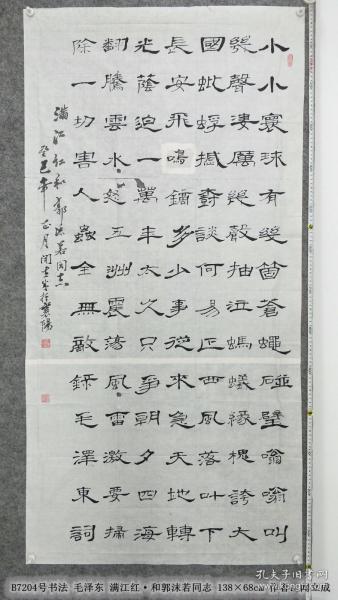 小小寰球有幾箇蒼蠅碰壁嗡嗡叫
幾聲凄厲幾聲抽泣螞蟻緣槐誇大
國蚍蜉撼樹談何易正西風落叶下
長安飛鳴鏑多少事從來急天地轉
光蔭迫一萬年太久只爭朝夕四海
翻騰雲水怒五洲震蕩風雷激要掃
除一切害人蟲全無敵錄毛澤東詞
滿江紅和郭沫若同志
癸巳年正月
襄陽
B7204号书法 毛泽东 满江红·和郭沫若同志 138×68㎝
孔夫子旧书网